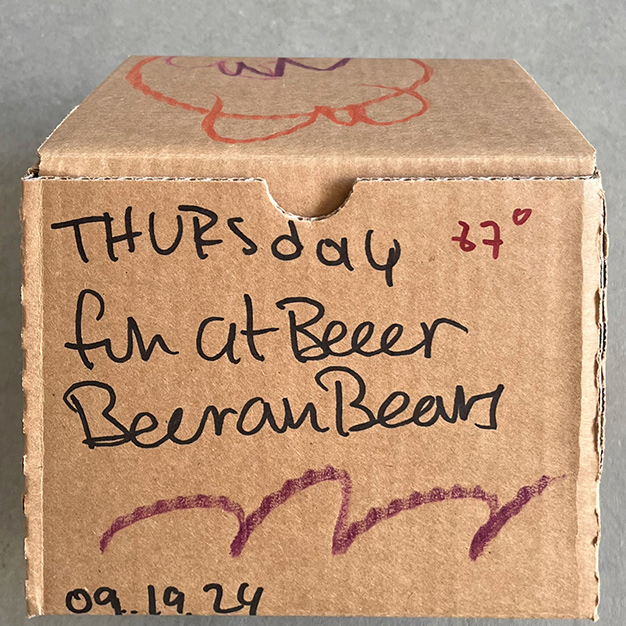 THURSday
fun at Beeer
Beeran Bears
09.19.24